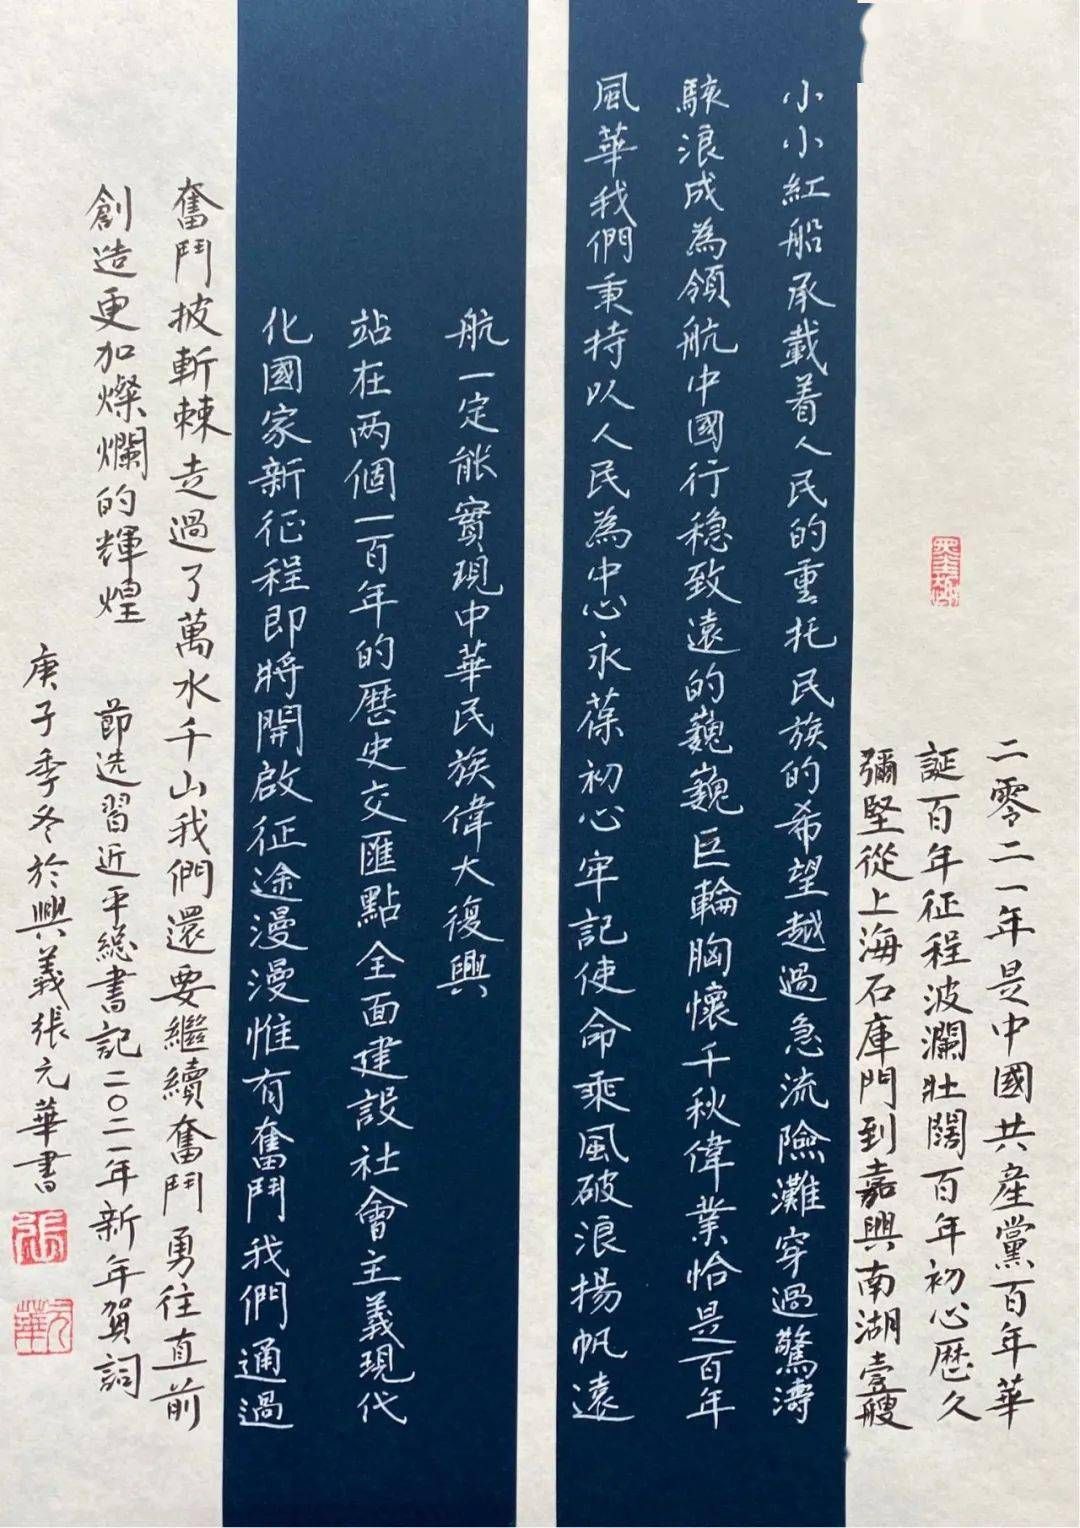 二零二一年是中國共產黨百年華
誕百年征程波瀾壯闊百年初心歷久
彌堅從上海石庫門到嘉興南湖壹艘
小小紅船承載着人民的重托民族的希望越過急流險灘穿過驚濤
駭浪成為領航中國行穩致遠的巍巍巨輪胸懷千秋偉業恰是百年
風華我們秉持以人民為中心永葆初心牢記使命乘風破浪揚帆遠
航一定能實現中華民族偉大復興
站在两個一百年的歷史交匯點全面建設社會主義現代
化國家新征程即將開啟征途漫漫惟有奮鬥我們通過
奮鬥披斬棘走過了萬水千山我們還要繼續奮鬥勇往直前
創造更加燦爛的輝煌 節选習近平總書記二〇二一年新年賀詞
庚子季冬於興義張元華書
張
元華